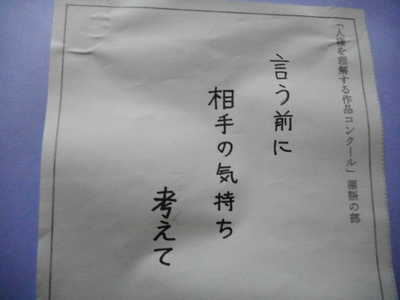 「人権を理解する作品コンクール」標語の部
言う前に
相手の気持ち
考えて